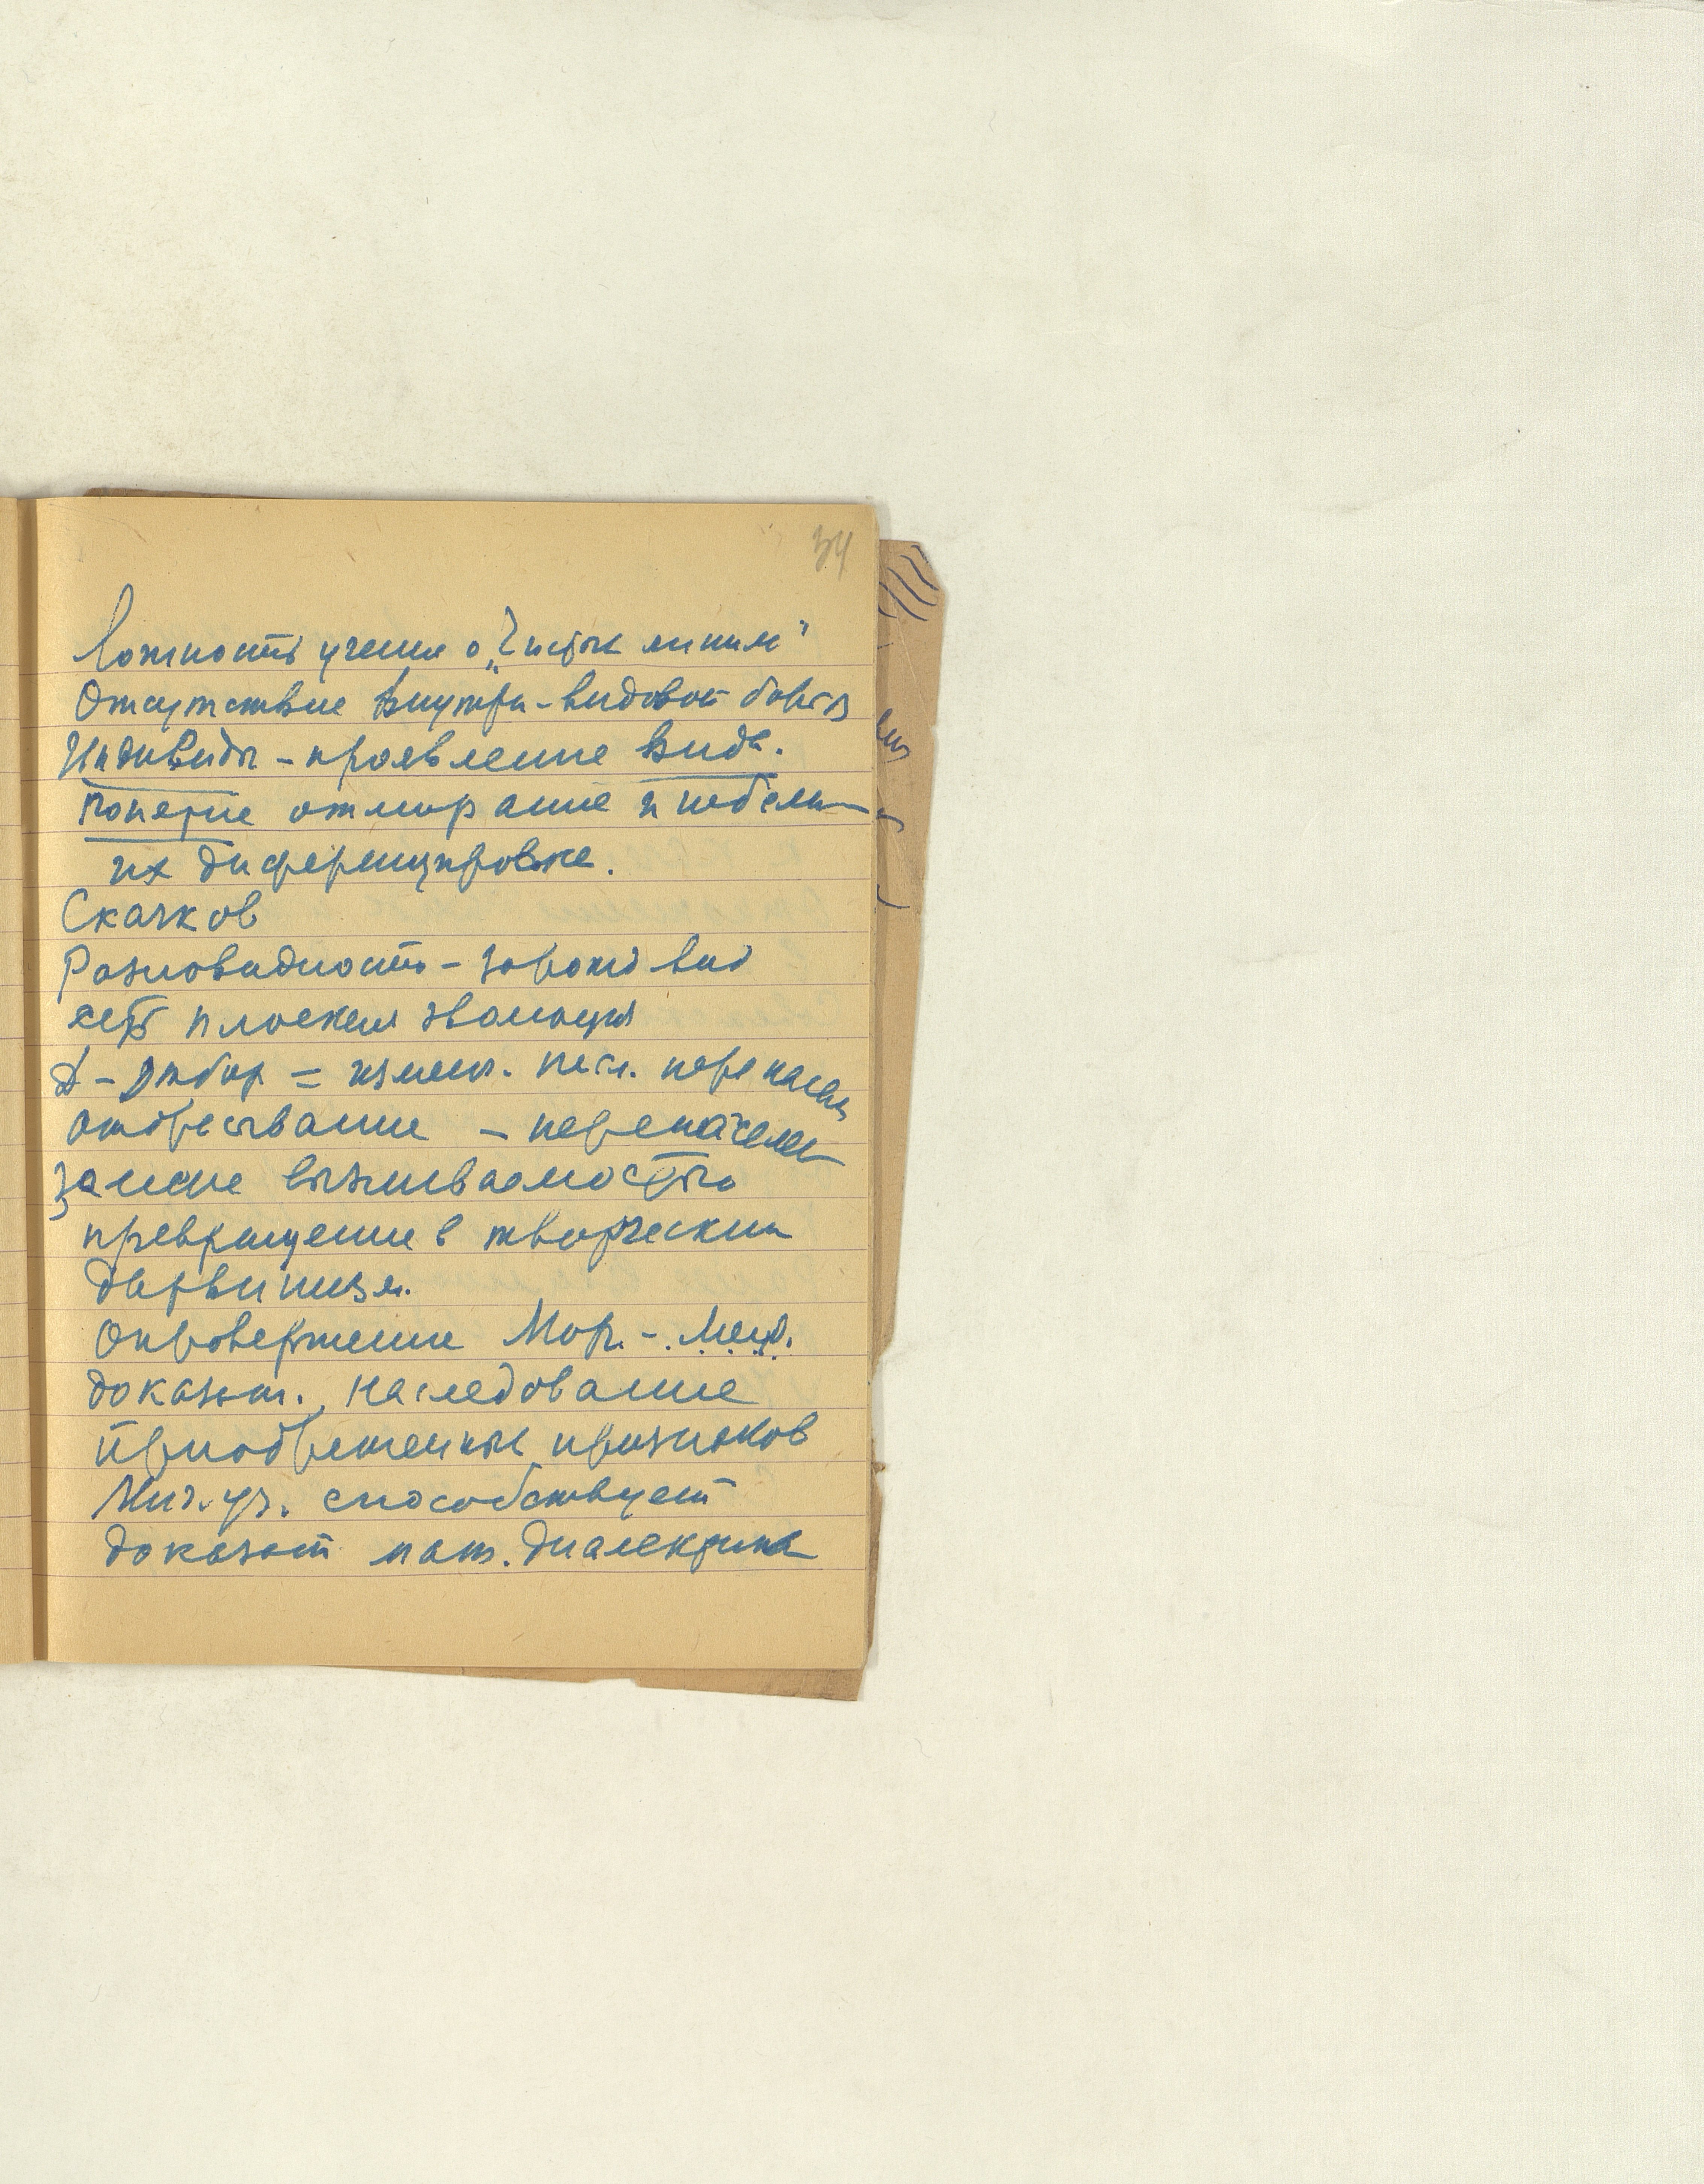 34
Ложность учения о „Чистых линий"
Отсутствие Внутри-видовой борьбы
Индивиды - проявление вида.
Понятие отмирание и
их диференцировке.
Скачков
Разновидность - зарожд вид
есть плоская эволюция
Д - Отбор = измен.
отбрасывание -
замене выживаемостью
превращение в творческий
дарвинизм.
Опровержение Мор. - Менд.
доказат. Наследование
приобретенных признаков
Мич. уч. способствует
доказат мат. диалектика